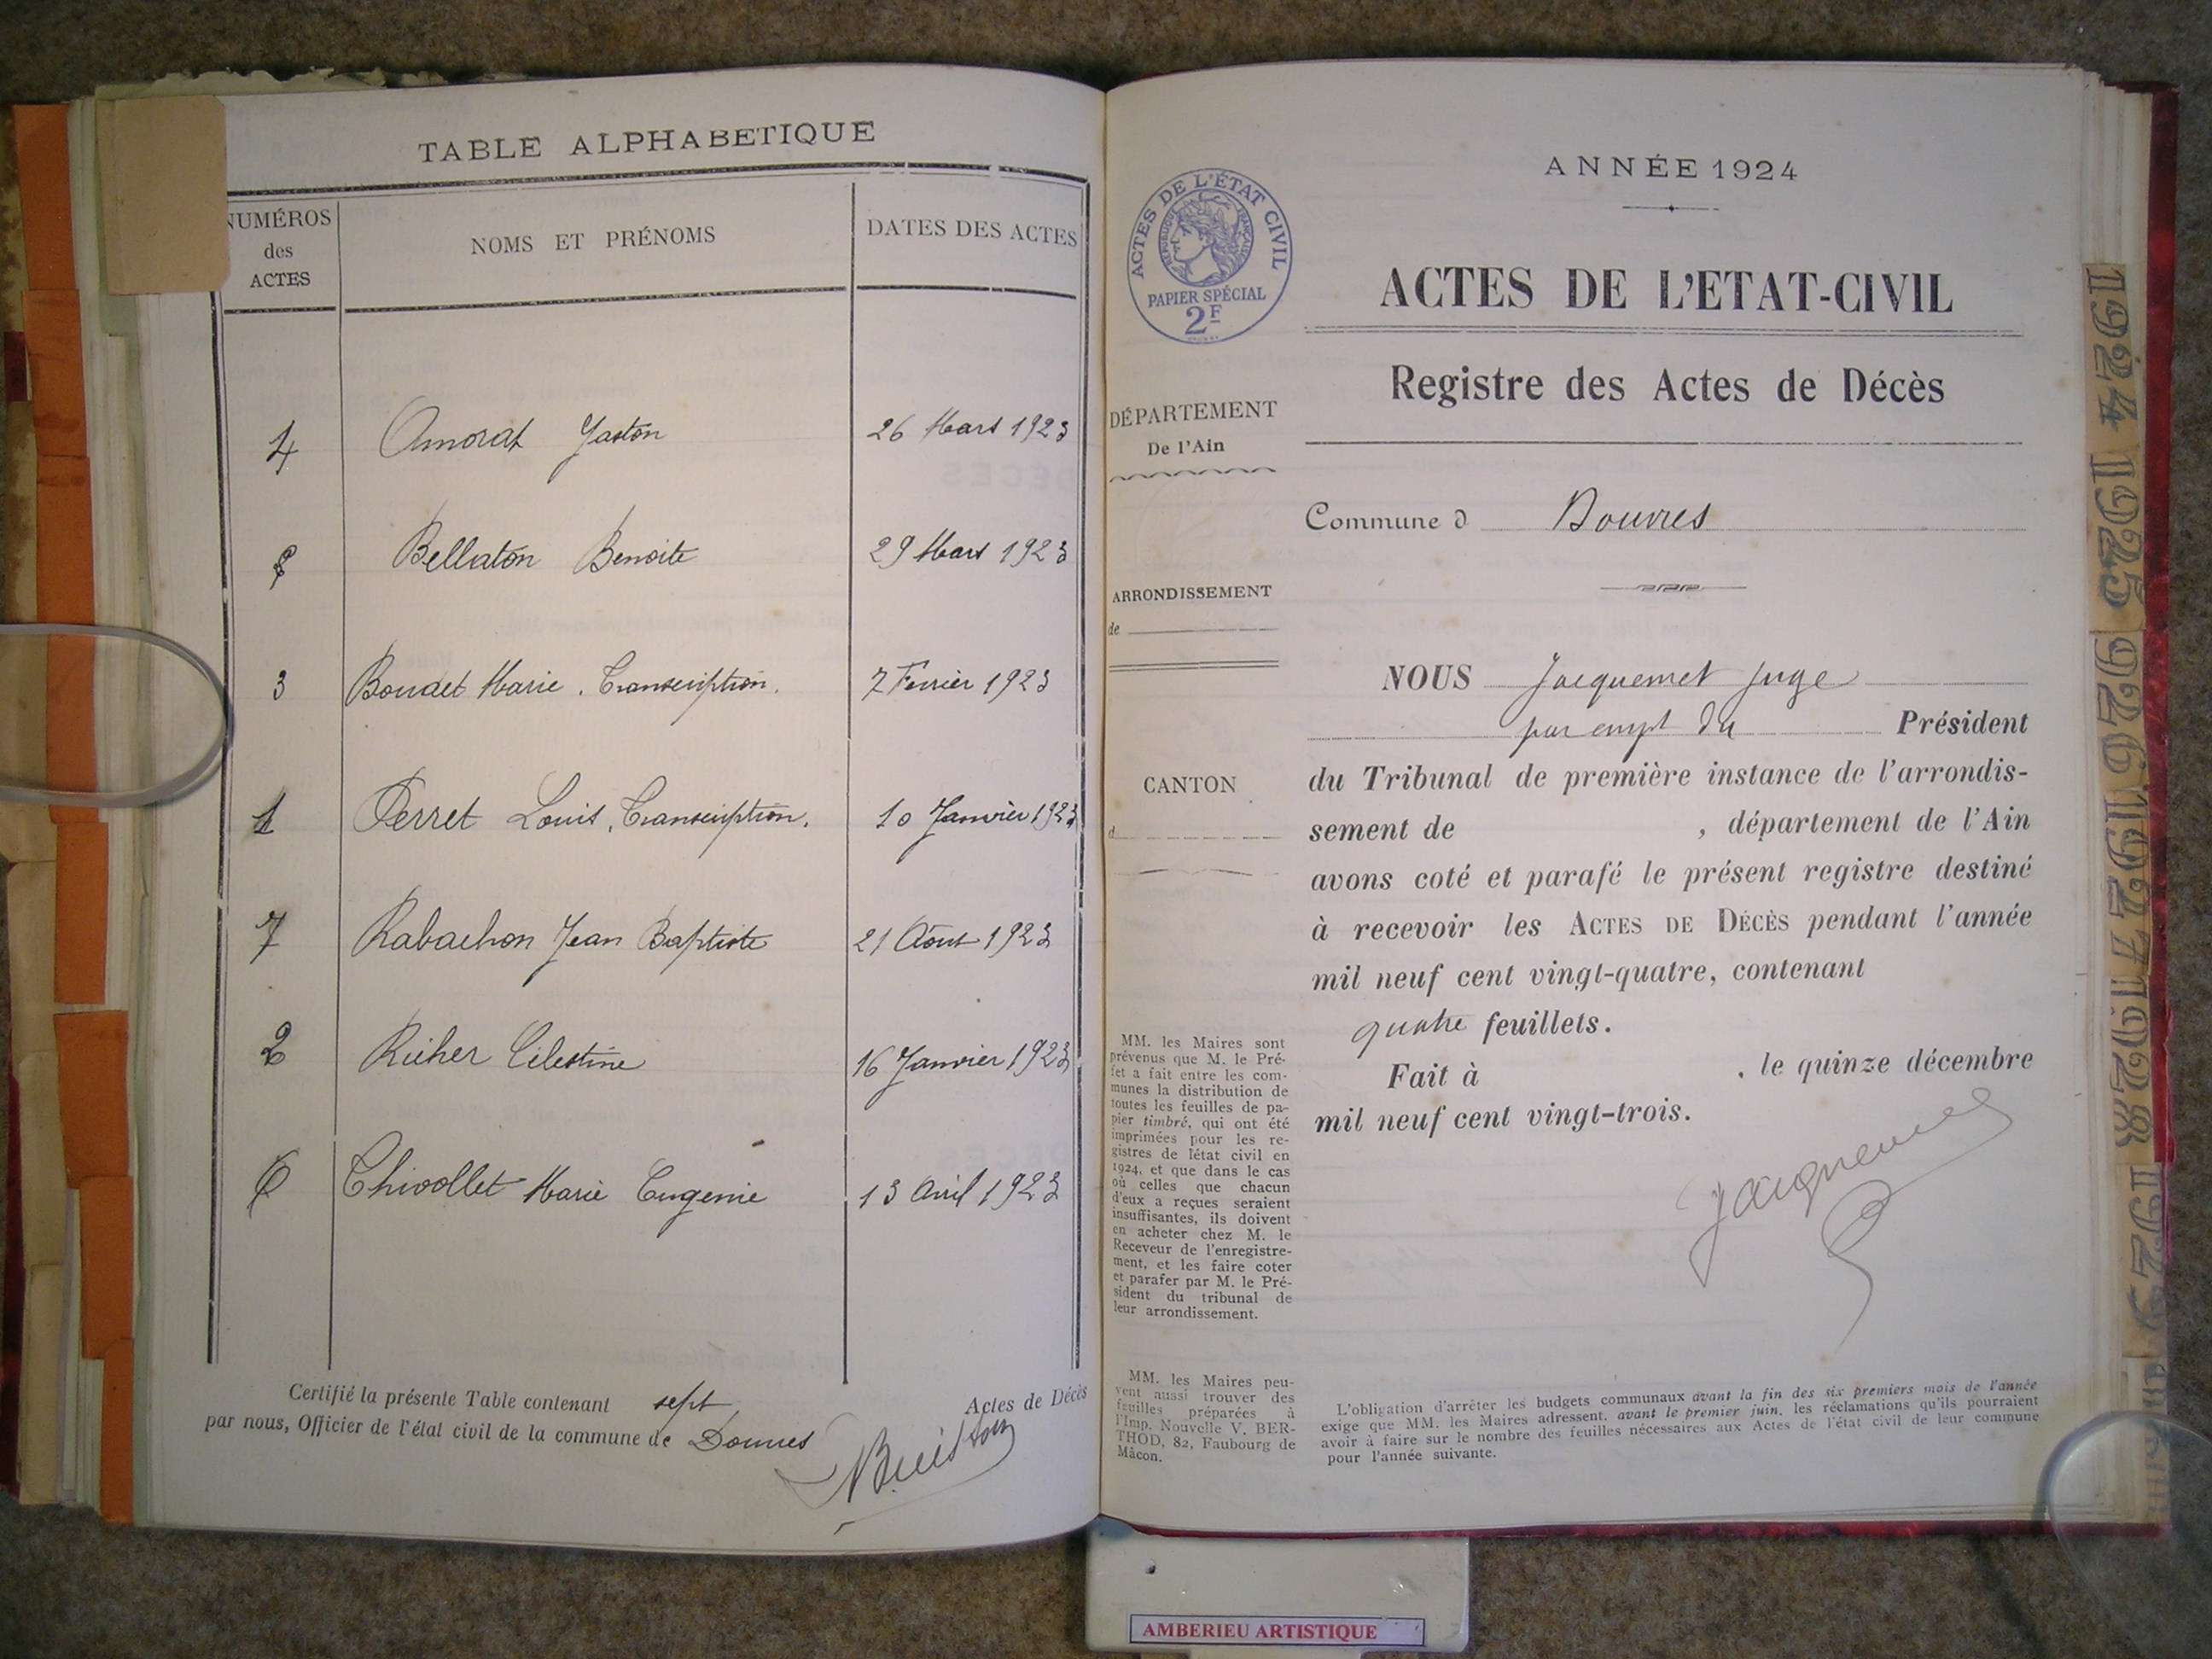 TABLE ALPHABETIQUE
NUMÉROS
des
ACTES
NOMS ET PRÉNOMS
DATES DES ACTES
4 Amorat Gaston 26 Mars 1923
Bellaton Benoite 29 Mars 1923
3 Boudet Marie. Transcription. 7 Fevrier 1923
1 Perret Louis, Transcription. 10 Janvier 1923
7 Rabachon Jean Baptiste 21 Août 1923
2 Richer Célestine 16 Janvier 1923
6 Thivollet Marie Eugenie 13 Avril 1923
Certifié la présente Table contenant sept Actes de Décès
par nous, Officier de l'état civil de la commune de Douvres
ANNÉE 1924
ACTES DE L'ÉTAT CIVIL
RÉPUBLIQUE FRANÇAISE
PAPIER SPÉCIAL
2F
ACTES DE L'ETAT-CIVIL
Registre des Actes de Décès
DÉPARTEMENT
De l'Ain
Commune d Douvres
ARRONDISSEMENT
de
CANTON
d
NOUS Jacquemet juge
par empt du Président
du Tribunal de première instance de l'arrondis-
sement de , département de l'Ain
avons coté et parafé le présent registre destiné
à recevoir les ACTES DE DÉCÈS pendant l'année
mil neuf cent vingt-quatre, contenant
quatre feuillets.
Fait à , le quinze décembre
mil neuf cent vingt-trois.
Jacquemet
MM. les Maires sont
prévenus que M. le Pré-
fet a fait entre les com-
munes la distribution de
toutes les feuilles de pa-
pier timbré, qui ont été
imprimées pour les re-
gistres de l'état civil en
1924, et que dans le cas
où celles que chacun
d'eux a reçues seraient
insuffisantes, ils doivent
en acheter chez M. le
Receveur de l'enregistre-
ment, et les faire coter
et parafer par M. le Pré-
sident du tribunal de
leur arrondissement.
MM. les Maires peu-
vent aussi trouver des
feuilles préparées à
l'Imp. Nouvelle V. BER-
THOD, 82, Faubourg de
Mâcon.
L'obligation d'arrêter les budgets communaux avant la fin des six premiers mois de l'année
exige que MM. les Maires adressent, avant le premier juin, les réclamations qu'ils pourraient
avoir à faire sur le nombre des feuilles nécessaires aux Actes de l'état civil de leur commune
pour l'année suivante.
1924 1925 1926 1927 1928 1929
AMBERIEU ARTISTIQUE